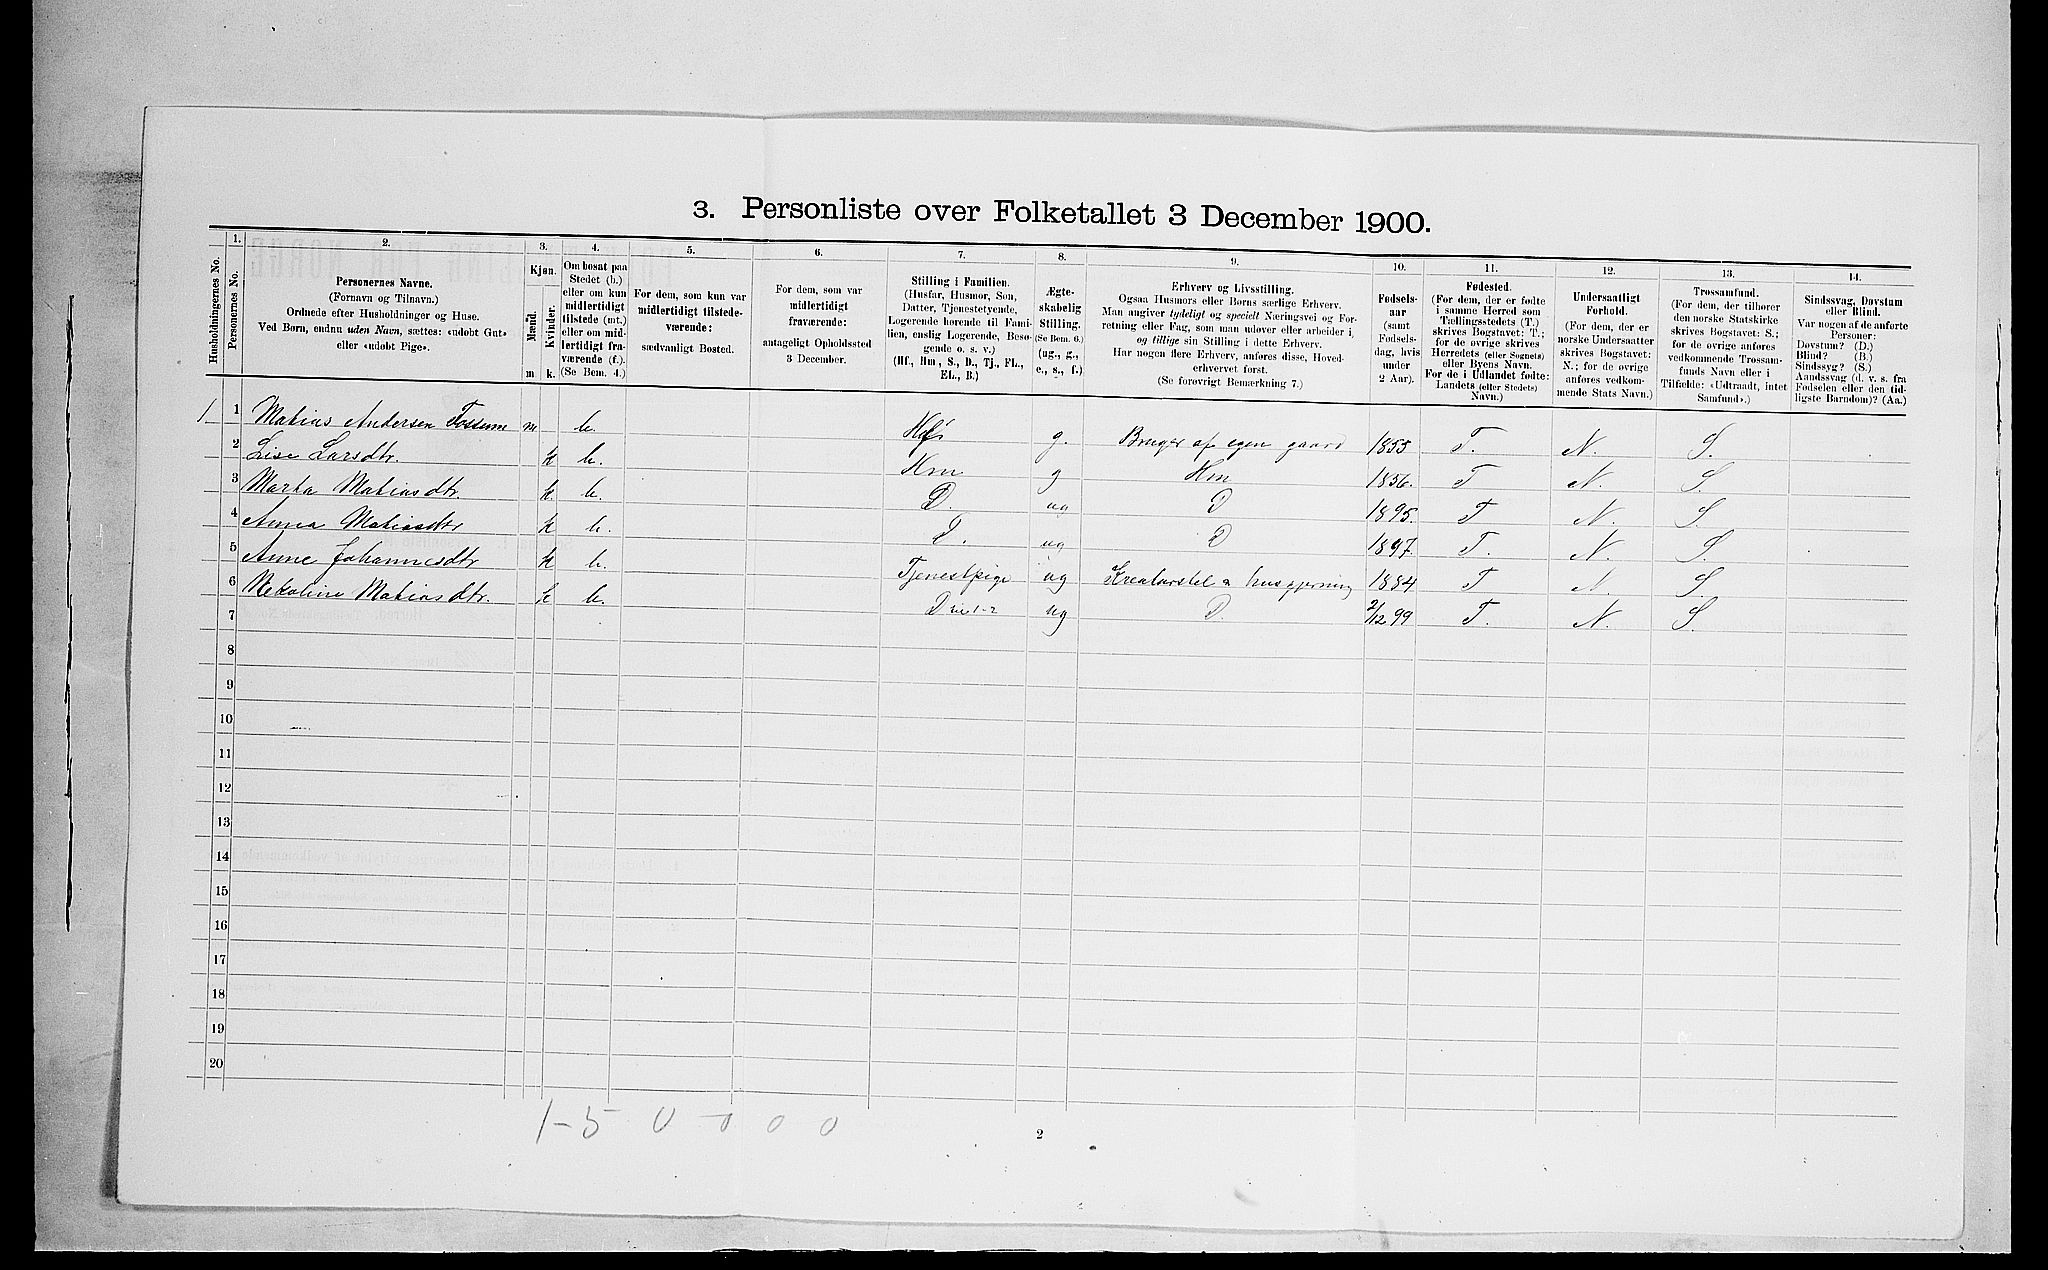 3. Personliste over Folketallet 3 December 1900.
Husholdningernes No.
1. Personernes No.
2. Personernes Navne. (Fornavn og Tilnavn.) Ordnede efter Husholdninger og Huse. Ved Børn, endnu uden Navn, sættes: «udøbt Gut» eller «udøbt Pige».
3. Kjøn. Mænd. Kvinder. m k.
4. Om bosat paa Stedet (b.) eller om kun midlertidigt tilstede (mt.) eller om midlertidigt fraværende (f.). (Se Bem. 4.)
5. For dem, som kun var midlertidigt tilstedeværende: sædvanligt Bosted.
6. For dem, som var midlertidigt fraværende: antageligt Opholdssted 3 December.
7. Stilling i Familien. (Husfar, Husmor, Søn, Datter, Tjenestetyende, Logerende hørende til Familien, enslig Logerende, Besøgende o. s. v.) (Hf, Hm, S., D., Tj., FL., EL., B.)
8. Ægteskabelig Stilling. (Se Bem. 6.) (ug., g., e., s., f.)
9. Erhverv og Livsstilling. Ogsaa Husmors eller Børns særlige Erhverv. Man angiver tydeligt og specielt Næringsvei og Forretning eller Fag, som man udøver eller arbeider i, og tillige sin Stilling i dette Erhverv. Har nogen flere Erhverv, anføres disse, Hovederhvervet først. (Se forøvrigt Bemærkning 7.)
10. Fødselsaar (samt Fødselsdag, hvis under 2 Aar).
11. Fødested. (For dem, der er fødte i samme Herred som Tællingsstedets (T.) skrives Bogstavet: T.; for de øvrige skrives Herredets (eller Sognets) eller Byens Navn. For de i Udlandet fødte: Landets (eller Stedets) Navn.)
12. Undersaatligt Forhold. (For dem, der er norske Undersaatter skrives Bogstavet: N.; for de øvrige anføres vedkommende Stats Navn.)
13. Trossamfund. (For dem, der tilhører den norske Statskirke skrives Bogstavet: S.; for de øvrige anføres vedkommende Trossamfunds Navn eller i Tilfælde: «Udtraadt, intet Samfund».)
14. Sindssvag, Døvstum eller Blind. Var nogen af de anførte Personer: Døvstum? (D.) Blind? (B.) Sindssyg? (S.) Aandssvag (d. v. s. fra Fødselen eller den tidligste Barndom)? (Aa.)
1 1 Matias Andersen Fossum m b. Hf g. Bruger af egen gaard 1855 T. N. S.
2 Lise Larsdtr. k b. Hm g Hm 1856. T N. S.
3 Marta Matiasdtr. k. b. D. ug D 1895. T N. S.
4 Anna Matiasdtr k b. D. ug D 1897. T. N. S.
5 Anne Johannesdtr k b. Tjenestpige ug Kreaturstel & husgjerning 1884 T N. S.
6 Matiasdtr. k b. D ug D. 2/12 99 T. N. S.
7
8
9
10
11
12
13
14
15
16
17
18
19
20
1-5 0 0 0 0
2